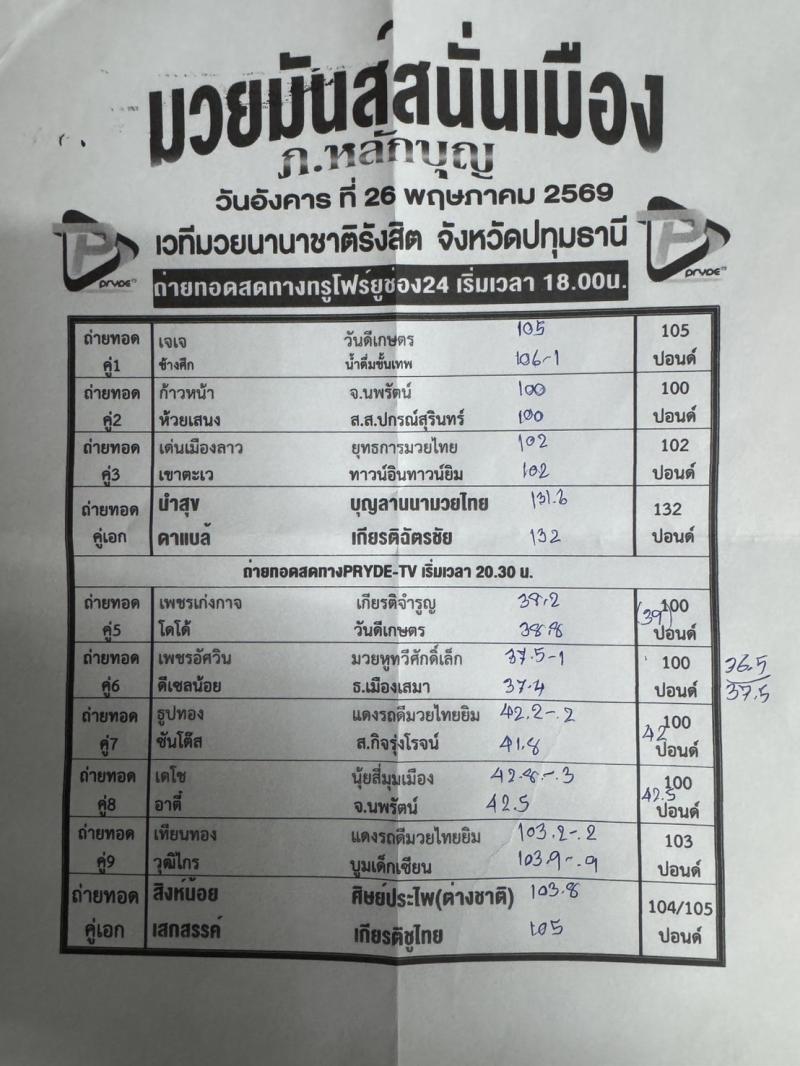 มวยมันส์สนั่นเมือง
ภ.หลักบุญ
วันอังคาร ที่ 26 พฤษภาคม 2569
เวทีมวยนานาชาติรังสิต จังหวัดปทุมธานี
PRYDE TV
PRYDE TV
ถ่ายทอดสดทางทรูโฟร์ยูช่อง24 เริ่มเวลา 18.00น.
ถ่ายทอด เจเจ วันดีเกษตร 105 105
คู่1 ช้างศึก น้ำดื่มขั้นเทพ 106-1 ปอนด์
ถ่ายทอด ก้าวหน้า จ.นพรัตน์ 100 100
คู่2 ห้วยเสนง ส.ส.ปกรณ์สุรินทร์ 100 ปอนด์
ถ่ายทอด เด่นเมืองลาว ยุทธการมวยไทย 102 102
คู่3 เขาตะเว ทาวน์อินทาวน์ยิม 102 ปอนด์
ถ่ายทอด นำสุข บุญลานนามวยไทย 131.6 132
คู่เอก คาแบล้ เกียรติฉัตรชัย 132 ปอนด์
ถ่ายทอดสดทางPRYDE-TV เริ่มเวลา 20.30 น.
ถ่ายทอด เพชรเก่งกาจ เกียรติจำรูญ 38.2 100
คู่5 โดโด้ วันดีเกษตร 38.8 (39) ปอนด์
ถ่ายทอด เพชรอัศวิน มวยหูทวีศักดิ์เล็ก 37.5-1 100 36.5
คู่6 ดีเซลน้อย ธ.เมืองเสมา 37.4 ปอนด์ 37.5
ถ่ายทอด ธูปทอง แดงรถดีมวยไทยยิม 42.2-.2 100
คู่7 ซันโต๊ส ส.กิจรุ่งโรจน์ 41.8 42 ปอนด์
ถ่ายทอด เดโช นุ้ยสี่มุมเมือง 42.8-.3 100
คู่8 อาตี๋ จ.นพรัตน์ 42.5 42.5 ปอนด์
ถ่ายทอด เทียนทอง แดงรถดีมวยไทยยิม 103.2-.2 103
คู่9 วุฒิไกร บูมเด็กเซียน 103.9-.9 ปอนด์
ถ่ายทอด สิงห์น้อย ศิษย์ประไพ(ต่างชาติ) 103.8 104/105
คู่เอก เสกสรรค์ เกียรติชูไทย 105 ปอนด์